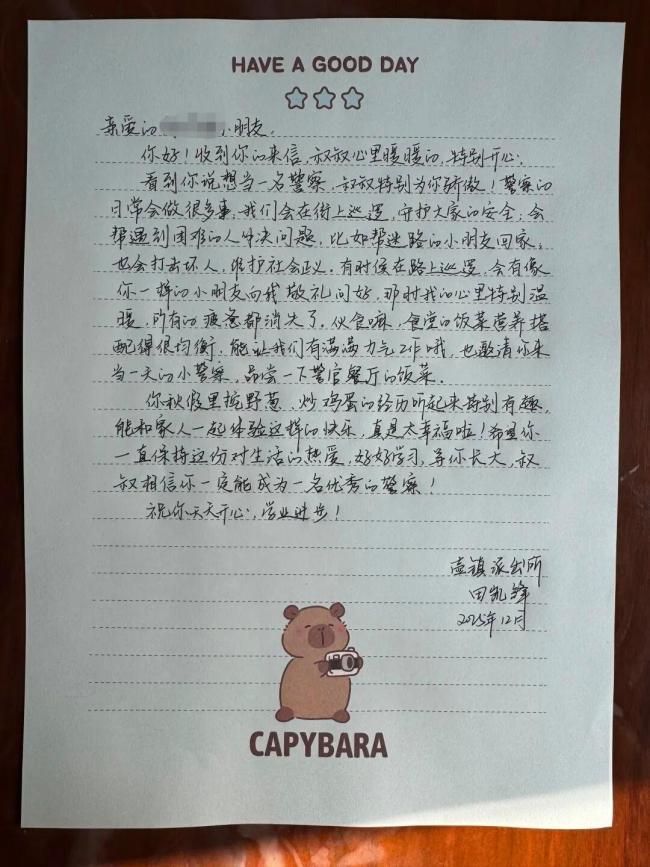 HAVE A GOOD DAY
亲爱的小朋友:
你好!收到你的来信,叔叔心里暖暖的,特别开心。
看到你说想当一名警察,叔叔特别为你骄傲!警察的
日常会做很多事,我们会在街上巡逻,守护大家的安全;会
帮遇到困难的人解决问题,比如帮迷路的小朋友回家;
也会打击坏人,维护社会正义。有时候在路上巡逻,会有像
你一样的小朋友向我敬礼问好,那时我的心里特别温
暖,所有的疲惫都消失了。伙食嘛,食堂的饭菜营养搭
配得很均衡,能让我们有满满力气工作哦,也邀请你来
当一天的小警察,品尝一下警官餐厅的饭菜。
你秋假里挖野葱、炒鸡蛋的经历听起来特别有趣,
能和家人一起体验这样的快乐,真是太幸福啦!希望你
一直保持这份对生活的热爱,好好学习,等你长大,叔
叔相信你一定能成为一名优秀的警察!
祝你天天开心,学业进步!
壶镇派出所
田凯锋
2025年12月
CAPYBARA